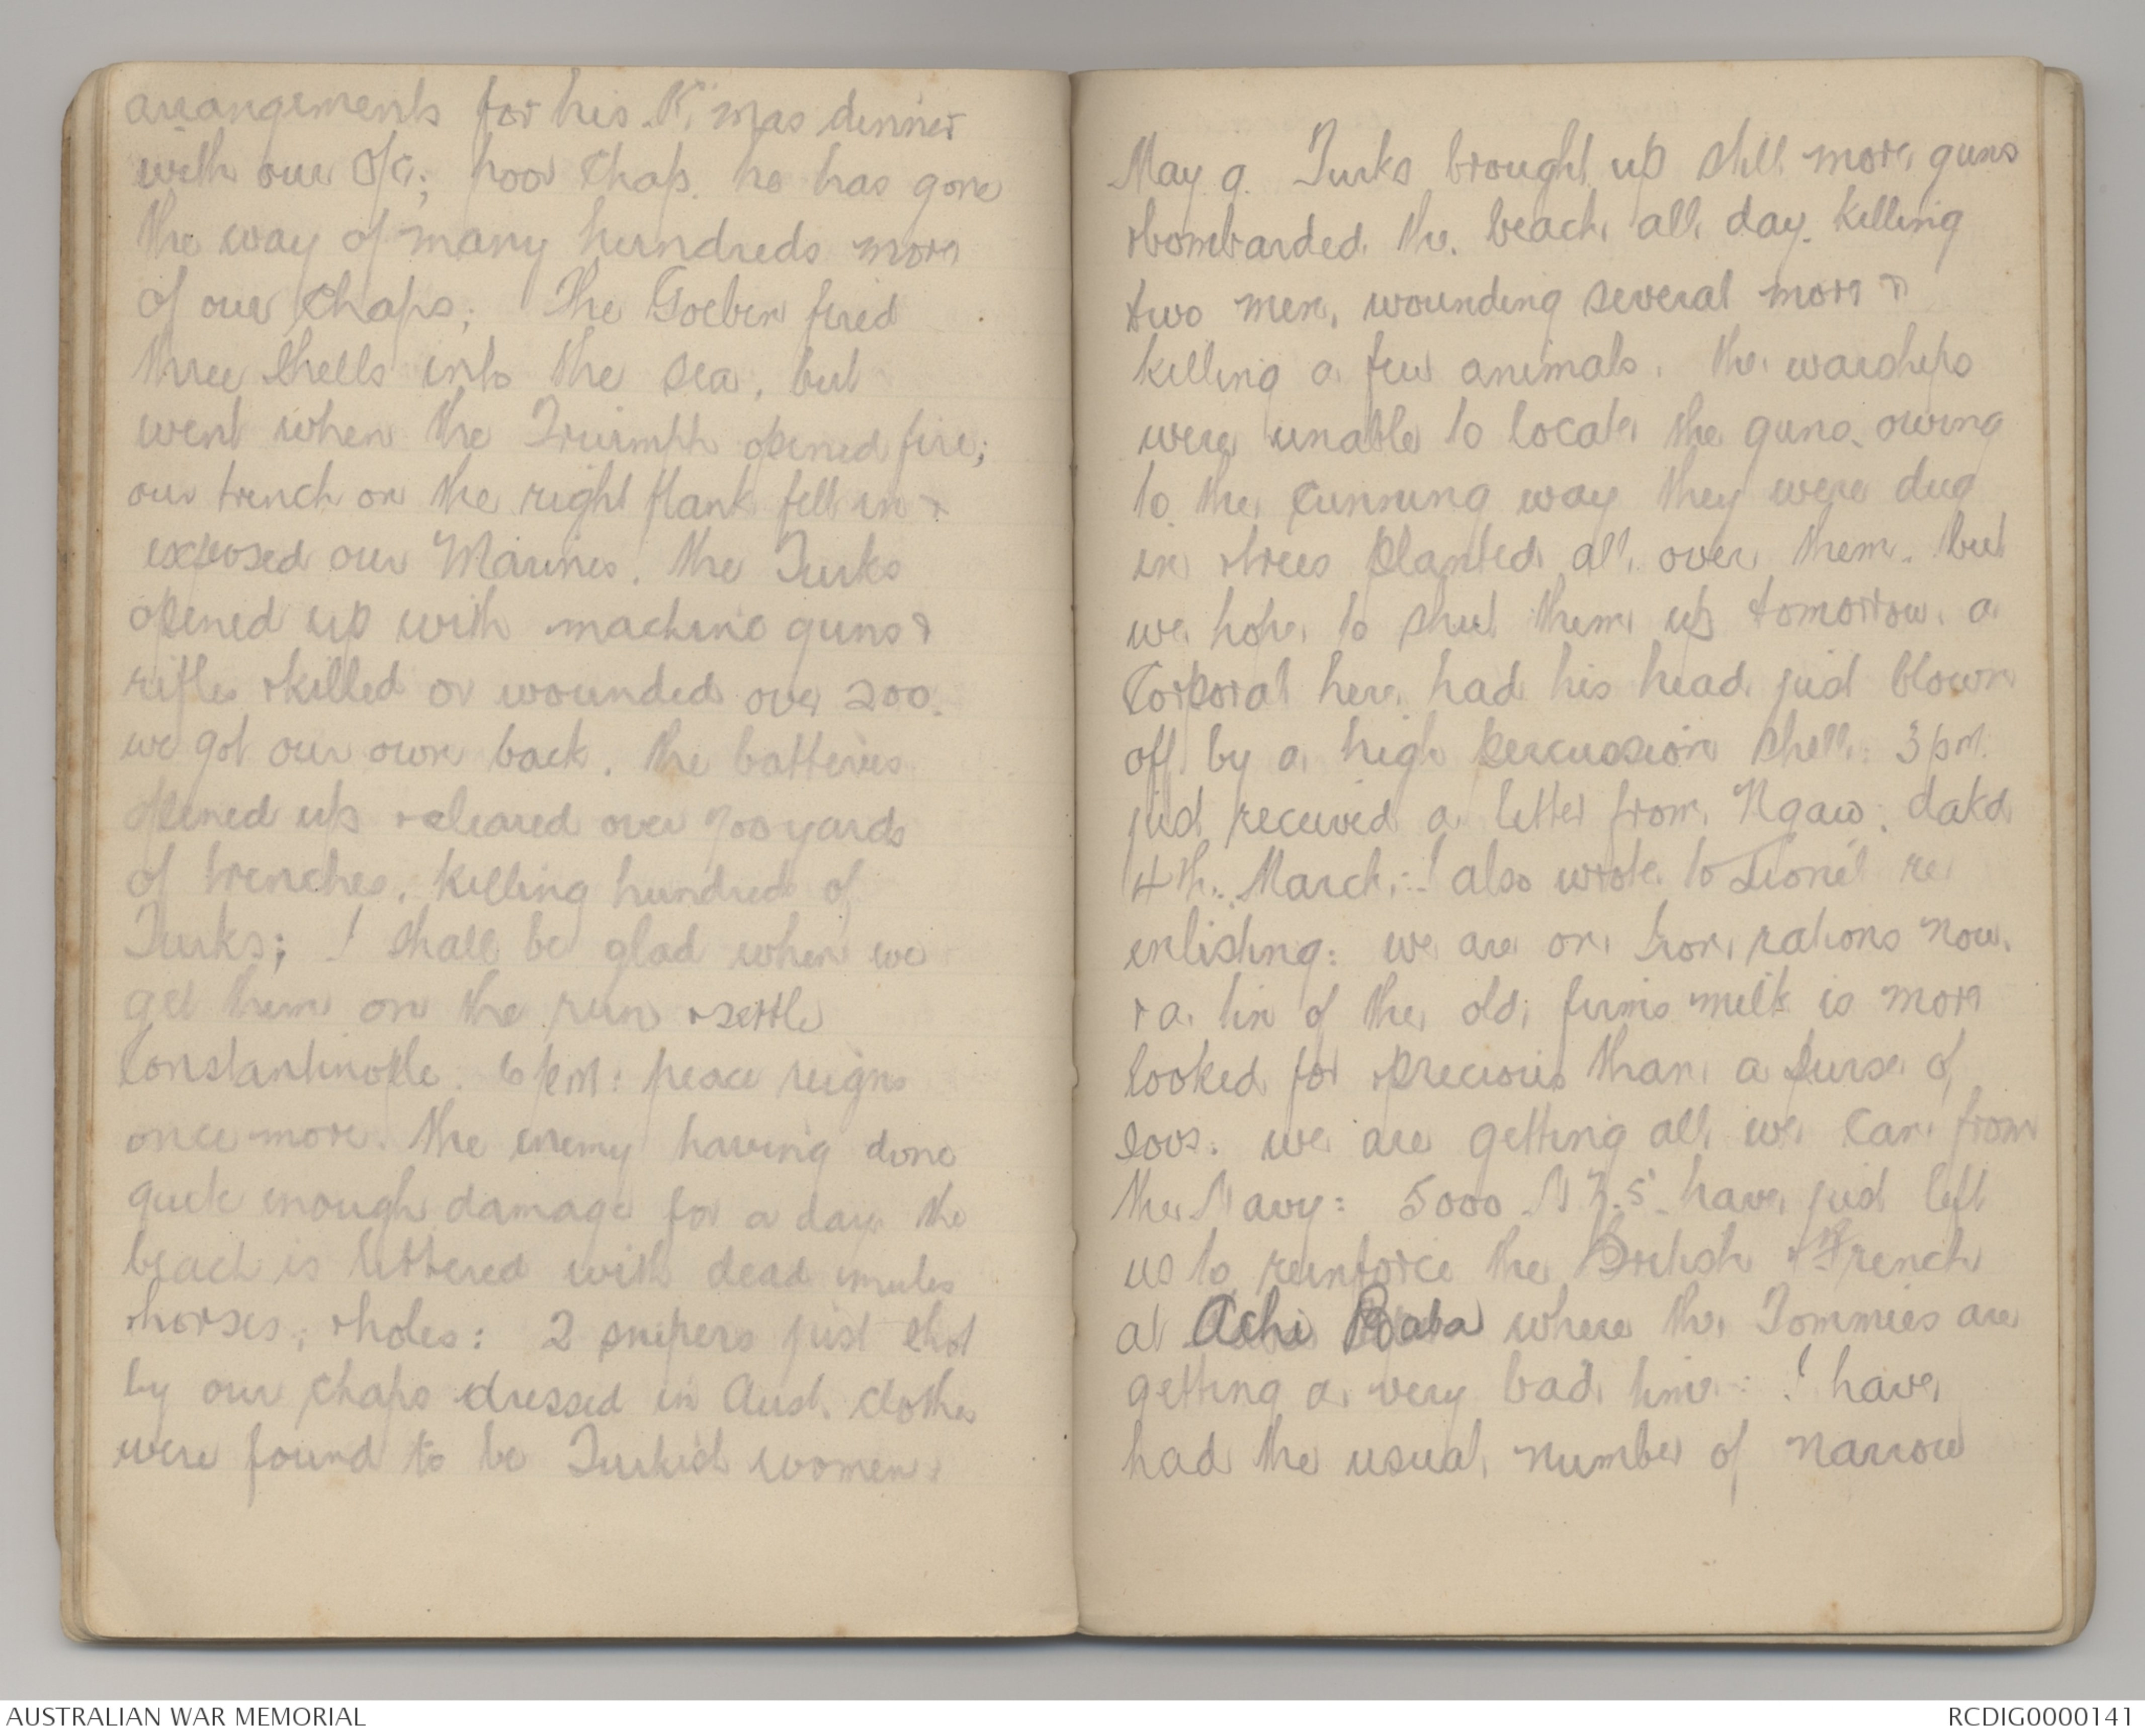 arrangements for his X'mas dinner
with our O/C; poor chap. he has gone
the way of many hundreds more
of our chaps; The Goeben fired
three shells into the sea, but
went when the Triumph opened fire;
our trench on the right flank fell in &
exposed our Marines. the Turks
opened up with machine guns &
rifles & killed or wounded over 200.
we got our own back. the batteries
opened up & cleared over 700 yards
of trenches, killing hundred of
Turks; I shall be glad when we
get them on the run & settle
Constantinople. 6 pm: peace reigns
once more. the enemy having done
quite enough damage for a day the
beach is littered with dead mules
horses, & holes: 2 snipers just shot
by our chaps dressed in Aust. clothes
were found to be Turkish women.
May 9. Turks brought up still more guns
& bombarded the beach all day. killing
two men, wounding several more &
killing a few animals. the warships
were unable to locate the guns owing
to the cunning way they were dug
in & trees planted all over them. but
we hope to shut them up tomorrow. a
Corporal here had his head just blown
off by a high percussion shell: 3 pm.
just received a letter from Ngaw: dated
4th. March: I also wrote to Lionel re
enlisting: we are on Iron rations now.
& a tin of the old firms milk is more
looked for & precious than a purse of
sovs. we are getting all we can from
the Navy: 5000 N.Z.s have just left
us to reinforce the British & French
at Achi Baba where the Tommies are
getting a very bad time: I have
had the usual number of narrow
AUSTRALIAN WAR MEMORIAL
RCDIG0000141